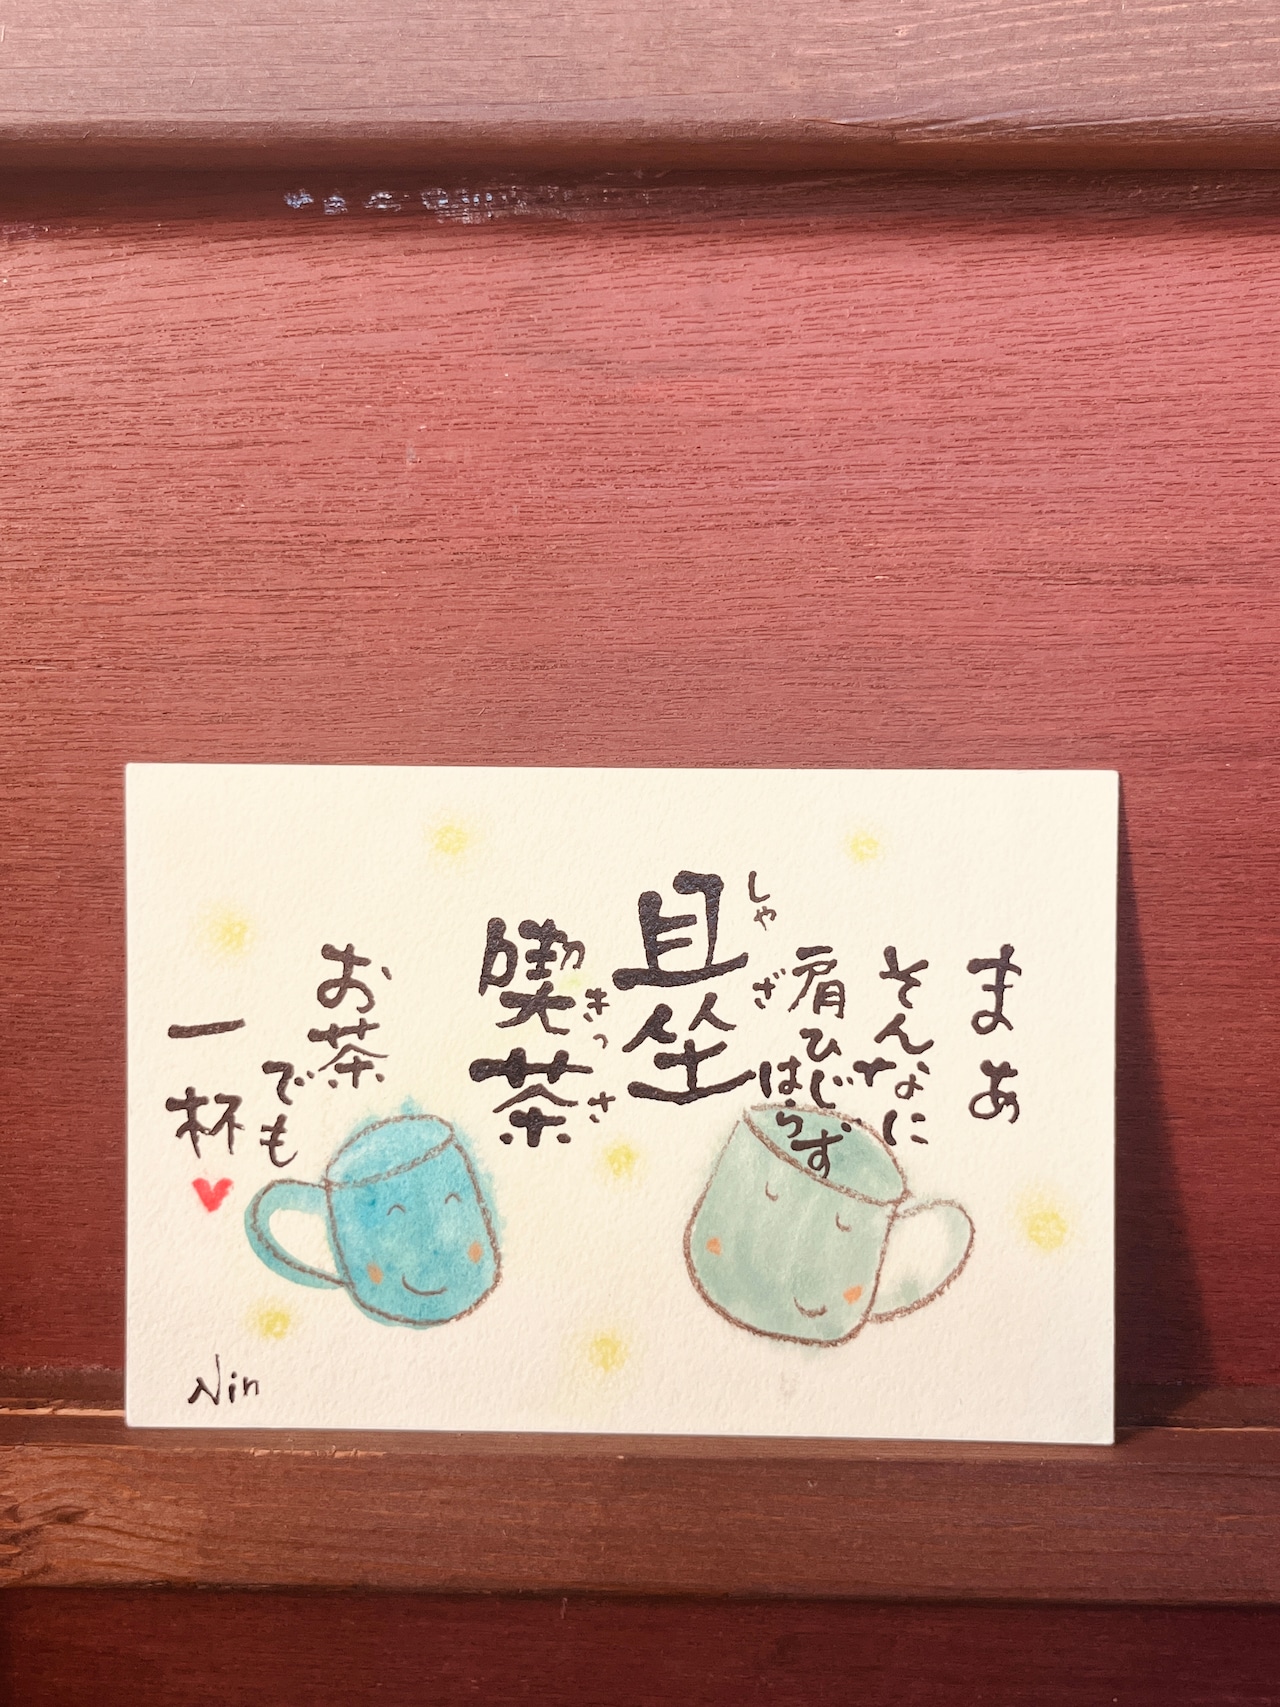 まあ
そんなに
肩ひじ
はらず
且坐
しゃざ
喫茶
きっさ
お茶
でも
一杯
Nin